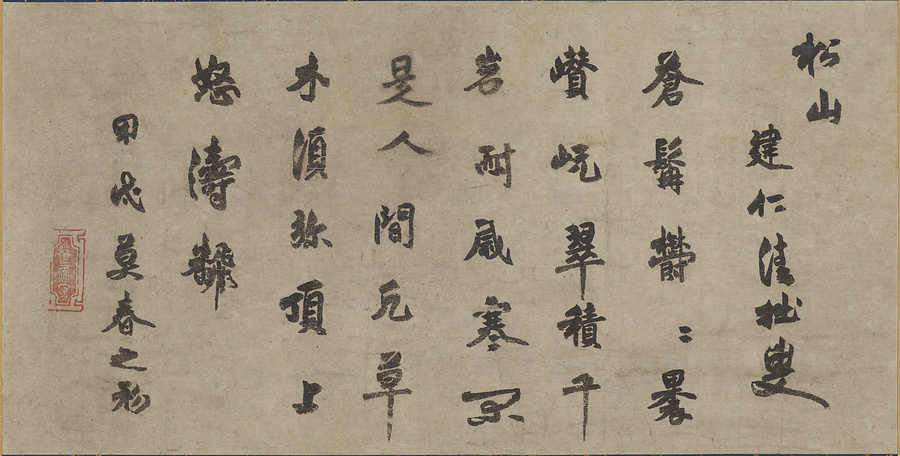 松山
建仁清拙叟
蒼髯鬱〻裹
巑岏翠積千
岩耐歳寒不
是人間凡草
木須弥頂上
怒濤飜
甲戌莫春之初